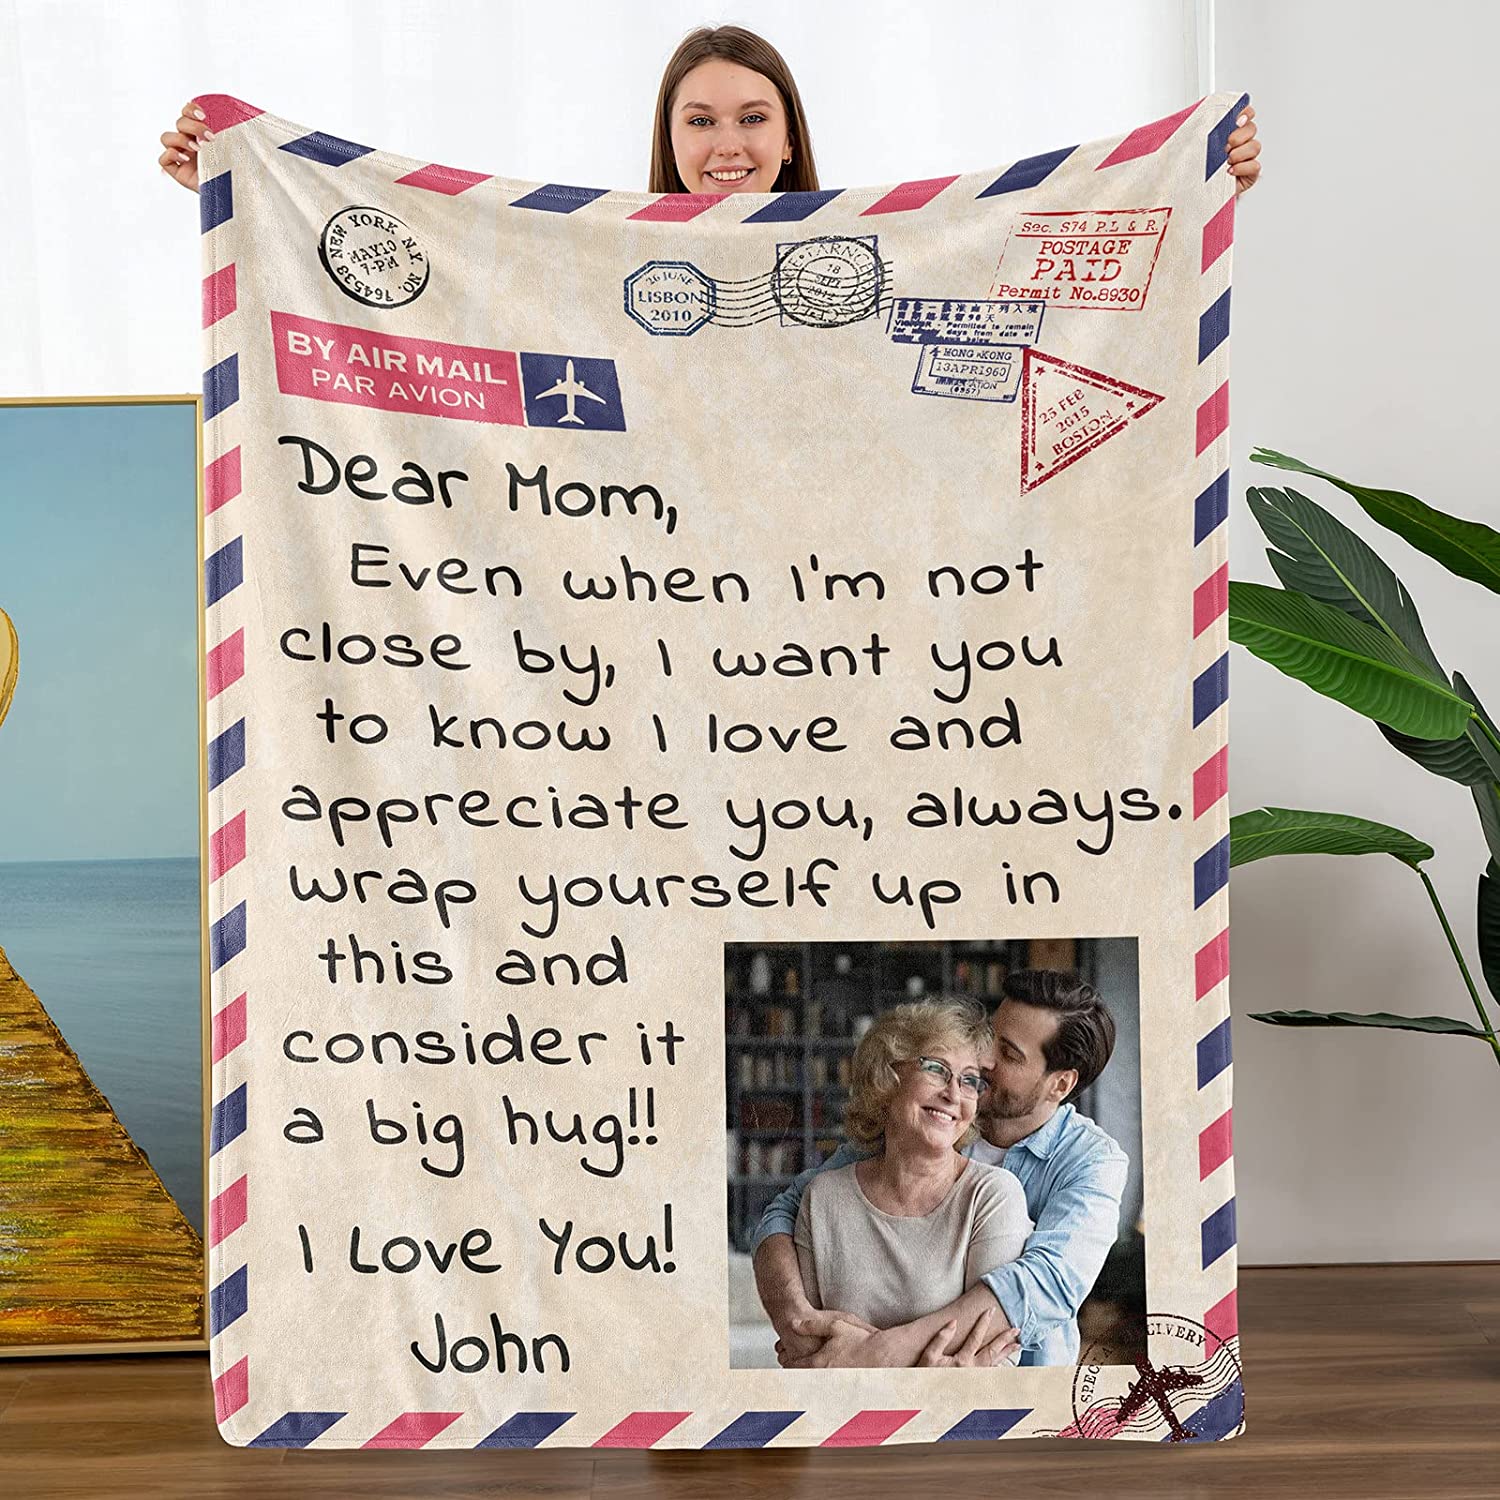 NEW YORK N.Y.
MAY10
7-PM
NO. 764533
26 JUNE
LISBON
2010
18
SEPT
2012
Sec. S74 P.L & R.
POSTAGE
PAID
Permit No.8930
Permitted to remain
days from date of
HONG KONG
13APR1960
(6357)
25 FEB
2015
BOSTON
BY AIR MAIL
PAR AVION
Dear Mom,
Even when I'm not
close by, I want you
to know I love and
appreciate you, always.
wrap yourself up in
this and
consider it
a big hug!!
I Love You!
John